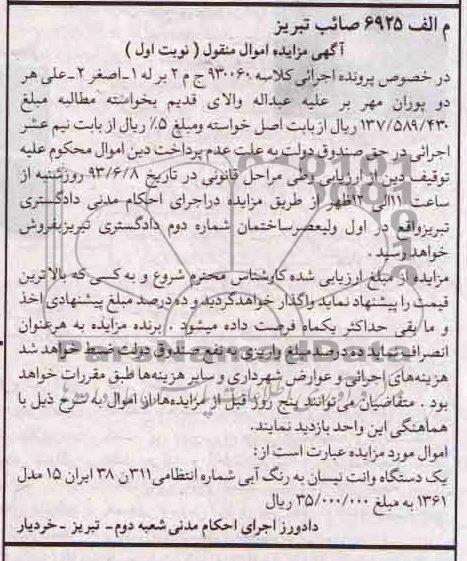 م الف ۶۹۲۵ صائب تبریز
آگهی مزایده اموال منقول ( نوبت اول )
در خصوص پرونده اجرائی کلاسه ۹۳۰۰۶۰ ج م ۲ بر له ۱-اصغر ۲-علی هر
دو پوزان مهر بر علیه عبداله والای قدیم بخواسته مطالبه مبلغ
۱۳۷/۵۸۹/۴۳۰ ریال از بابت اصل خواسته ومبلغ ۵٪ ریال از بابت نیم عشر
اجرائی در حق صندوق دولت به علت عدم پرداخت دین اموال محکوم علیه
توقیف دین از ارزیابی وطی مراحل قانونی در تاریخ ۹۳/۶/۸ روزشنبه از
ساعت ۱۱الی ۱۲ظهر از طریق مزایده دراجرای احکام مدنی دادگستری
تبریزواقع در اول ولیعصرساختمان شماره دوم دادگستری تبریزبفروش
خواهد رسید .
مزایده از مبلغ ارزیابی شده کارشناس محترم شروع و به کسی که بالاترین
قیمت را پیشنهاد نماید واگذار خواهدگردید و ده درصد مبلغ پیشنهادی اخذ
و ما بقی حداکثر یکماه فرصت داده میشود . برنده مزایده به هرعنوان
انصراف نماید ده درصدمبلغ واریزی به نفع صندوق دولت ضبط خواهد شد
هزینه‌های اجرائی و عوارض شهرداری و سایر هزینه‌ها طبق مقررات خواهد
بود . متقاضیان می‌توانند پنج روز قبل از مزایده‌ها از اموال به شرح ذیل با
هماهنگی این واحد بازدید نمایند.
اموال مورد مزایده عبارت است از:
یک دستگاه وانت نیسان به رنگ آبی شماره انتظامی۳۱۱ن ۳۸ ایران ۱۵ مدل
۱۳۶۱ به مبلغ ۳۵/۰۰۰/۰۰۰ ریال
دادورز اجرای احکام مدنی شعبه دوم- تبریز -خردیار